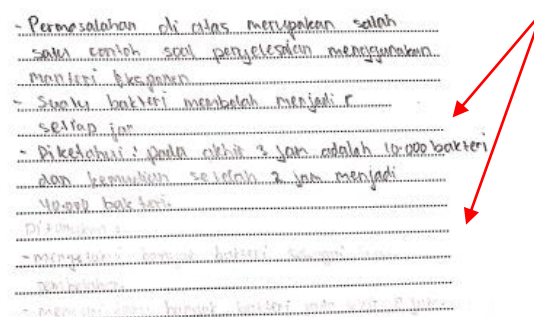 - Permasalahan di atas merupakan salah
satu contoh soal penyelesaian menggunakan
manteri Eksponen
- Suatu bakteri membelah menjadi r
setiap jam
- Diketahui : pada akhir 3 jam adalah 10.000 bakteri
dan kemudian setelah 2 jam menjadi
40.000 bakteri.
Ditanyakan :
- mengetahui banyak bakteri
- banyak bakteri